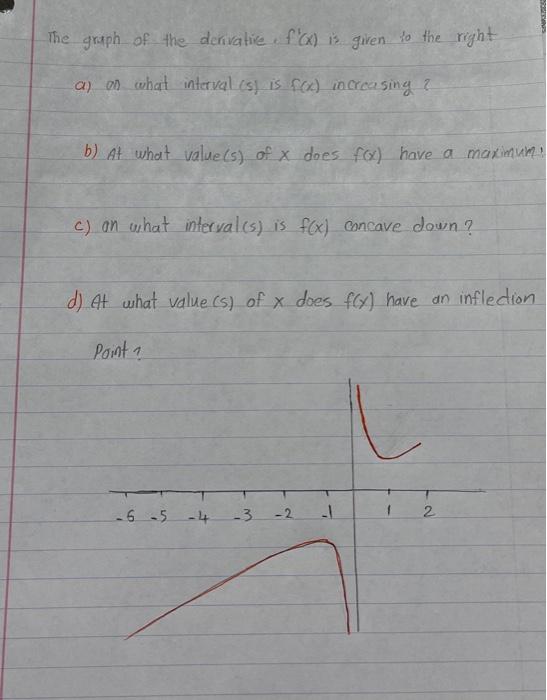 The graph of the derivative, f'(x) is given to the right
a) on what interval (s) is f(x) increasing ?
b) At what value(s) of x does f(x) have a maximum?
c) on what interval(s) is f(x) concave down ?
d) At what value (s) of x does f(x) have an inflection
Point ?
-6 -5 -4 -3 -2 -1 1 2